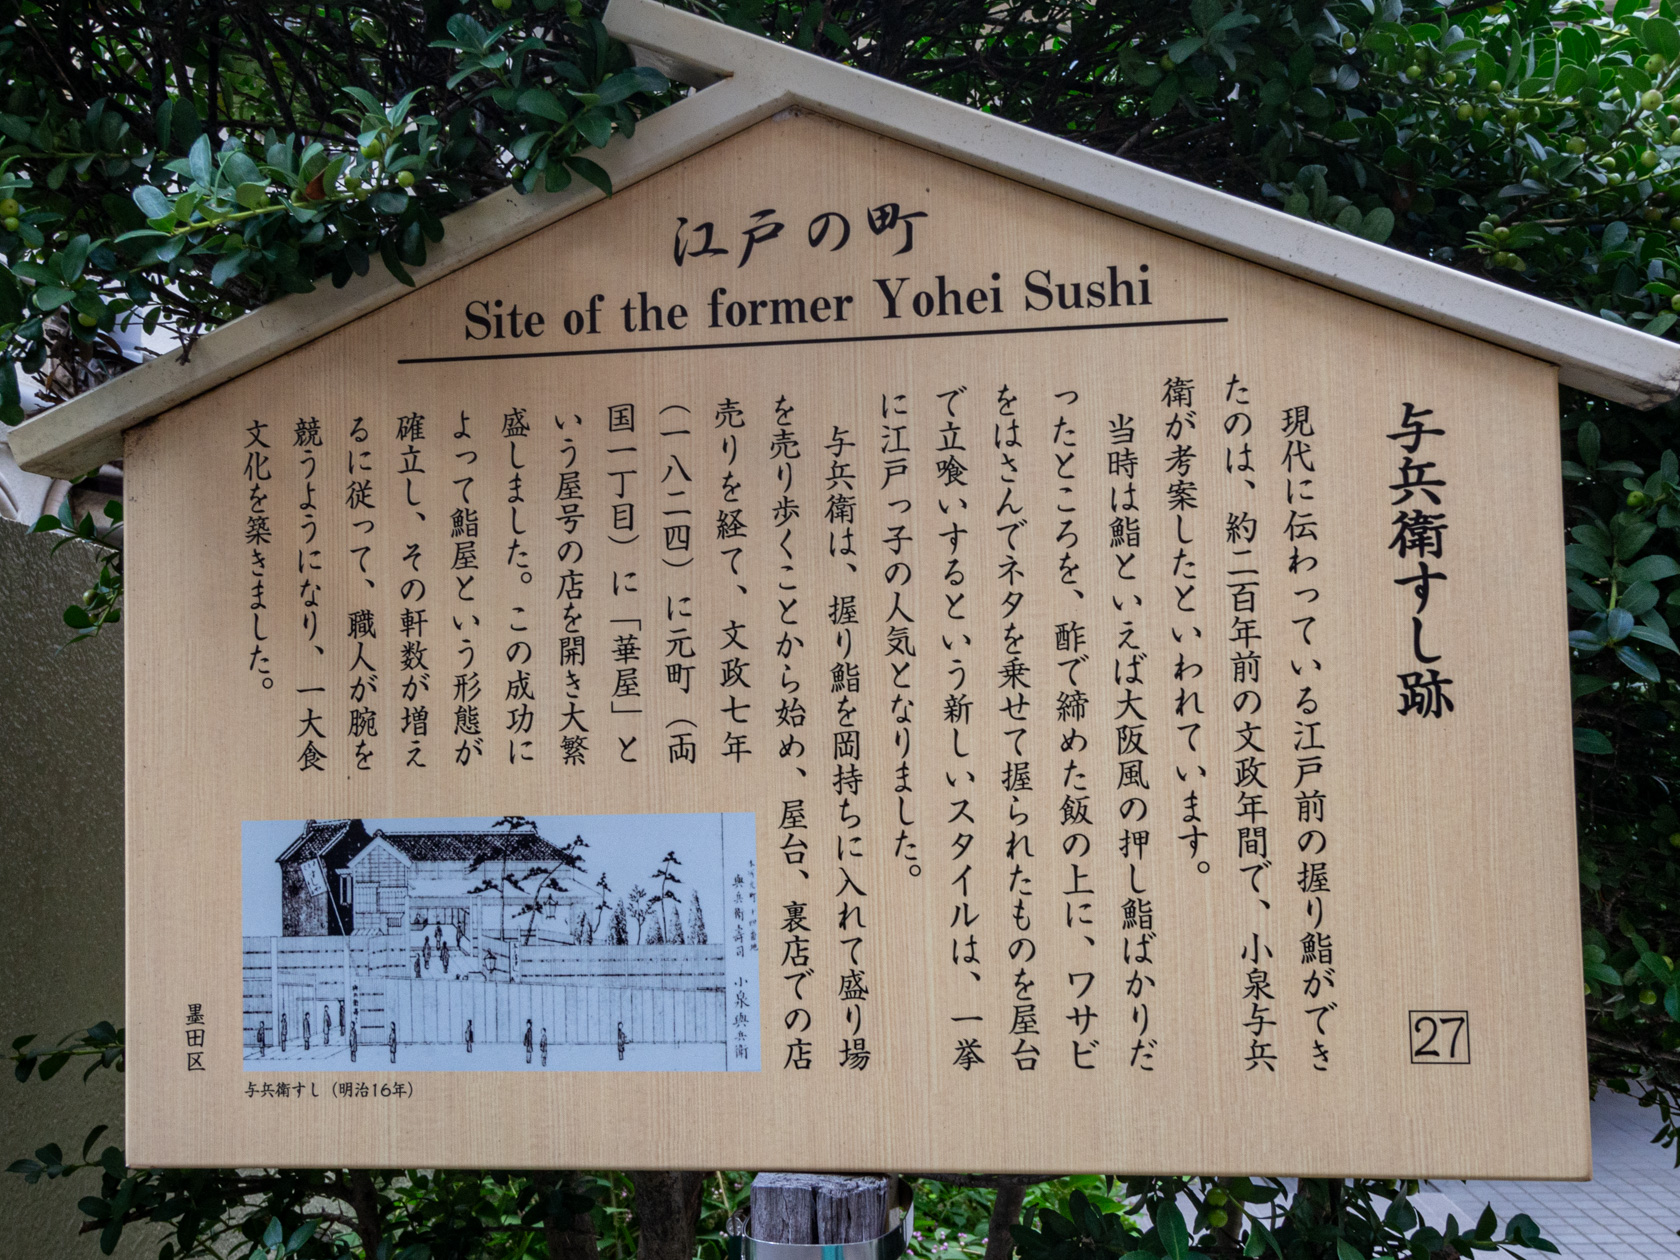 江戸の町
Site of the former Yohei Sushi
与兵衛すし跡
27
現代に伝わっている江戸前の握り鮨ができ
たのは、約二百年前の文政年間で、小泉与兵
衛が考案したといわれています。
当時は鮨といえば大阪風の押し鮨ばかりだ
ったところを、酢で締めた飯の上に、ワサビ
をはさんでネタを乗せて握られたものを屋台
で立喰いするという新しいスタイルは、一挙
に江戸っ子の人気となりました。
与兵衛は、握り鮨を岡持ちに入れて盛り場
を売り歩くことから始め、屋台、裏店での店
売りを経て、文政七年
（一八二四）に元町（両
国一丁目）に「華屋」と
いう屋号の店を開き大繁
盛しました。この成功に
よって鮨屋という形態が
確立し、その軒数が増え
るに従って、職人が腕を
競うようになり、一大食
文化を築きました。
與兵衛壽司 小泉與兵衛
与兵衛すし（明治16年）
墨田区